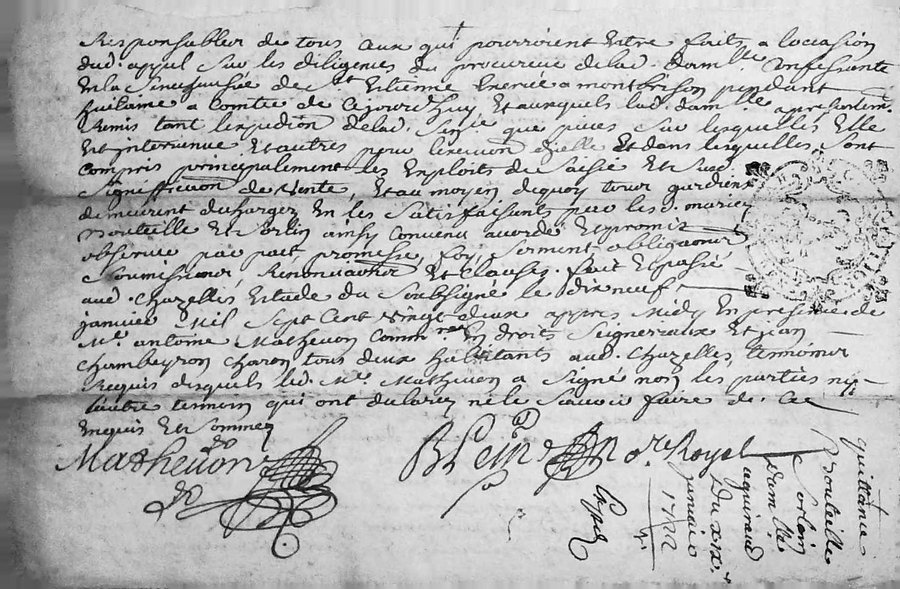 Responsables de tous ceux qui pourroient Estre faits a locasion
dud. appel sur les diligences du procureur de lad. damlle
En la Seneschaussée de St Etienne Exercée a montbrison pendant
jusques a Comter de cejourdhuy Et auxquels lad. damlle
Remis tant lexpedition de lad. que pieces sur lesquelles Elle
Est intervenue, Et autres pour dicelle Et dans lesquelles sont
compris principalement les Exploits de Saisie Et
Signiffication de vente, Et au moyen dequoy tour gardiens
demeurent duhargez En les Satisfaisants par les d. mariez
Bouteille Et Corlin ainsy Convenu acordé Et promis
observer par pact, promesse, foy, Serment obligations
Soumissions, Renonciations Et Clauses. fait Et passé
aud. Chazelles Estude du Soubsigné le dixneuf
janvier Mil Sept Cent vingt deux appres Midy En presence de
Me. antoine Mathevon Commre. En droits Seigneuraux Et jean
Chambeyron charon tous deux habitants aud. Chazelles, temoins
Requis desquels led. Me. Mathevon a Signé non les parties ny
lautre temoin qui ont declarez ne le Scavoir faire de. ce
Enquis Et Sommez
Mathevon
Blein nore. Royal
Expé
quittance
Bouteille
Corlin
damlle
aguiraud
Du xix.
janvier
1722